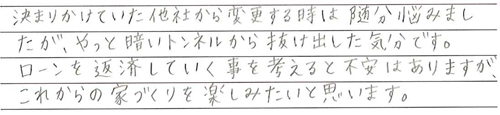 決まりかけていた他社から変更する時は随分悩みまし
たが、やっと暗いトンネルから抜け出した気分です。
ローンを返済していく事を考えると不安はありますが、
これからの家づくりを楽しみたいと思います。